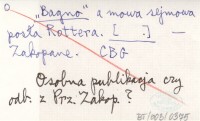 „Bagno" a mowa sejmowa
posła Rottera. [ . . . . ] —
Zakopane. CBG
Osobna publikacja czy
odb. z Prz. Zakop. ?
BT/003/0375